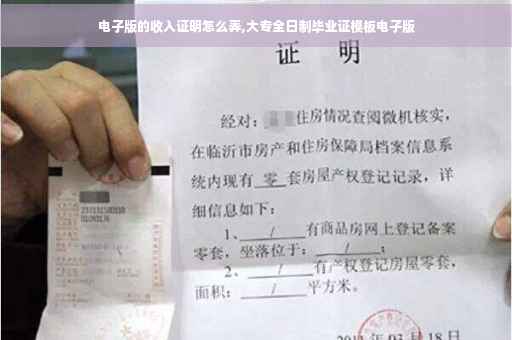 电子版的收入证明怎么弄,大专全日制毕业证模板电子版
证 明
经对: 住房情况查阅微机核实,
在临沂市房产和住房保障局档案信息系
统内现有 零 套房屋产权登记记录, 详
细信息如下:
1、 / 有商品房网上登记备案
零套, 坐落位于: / ;
2、 / 有产权登记房屋零套,
面积: / 平方米。
03月18日